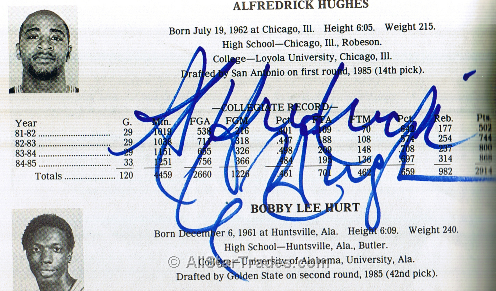 ALFREDRICK HUGHES
Born July 19, 1962 at Chicago, Ill. Height 6:05. Weight 215.
High School—Chicago, Ill., Robeson.
College—Loyola University, Chicago, Ill.
Drafted by San Antonio on first round, 1985 (14th pick).
—COLLEGIATE RECORD—
Year G. Min. FGA FGM Pct. FTA FTM Pct. Reb. Pts.
81-82 29 1018 538 177 502
82-83 29 318 188 108 254 744
83-84 326 208 148 237 800
84-85 33 1251 756 366 136 314 868
Totals 120 4459 2660 1226 .461 701 462 .659 982 2914
BOBBY LEE HURT
Born December 6, 1961 at Huntsville, Ala. Height 6:09. Weight 240.
High School—Huntsville, Ala., Butler.
College—University of Alabama, University, Ala.
Drafted by Golden State on second round, 1985 (42nd pick).
© AllStar-Trades.com